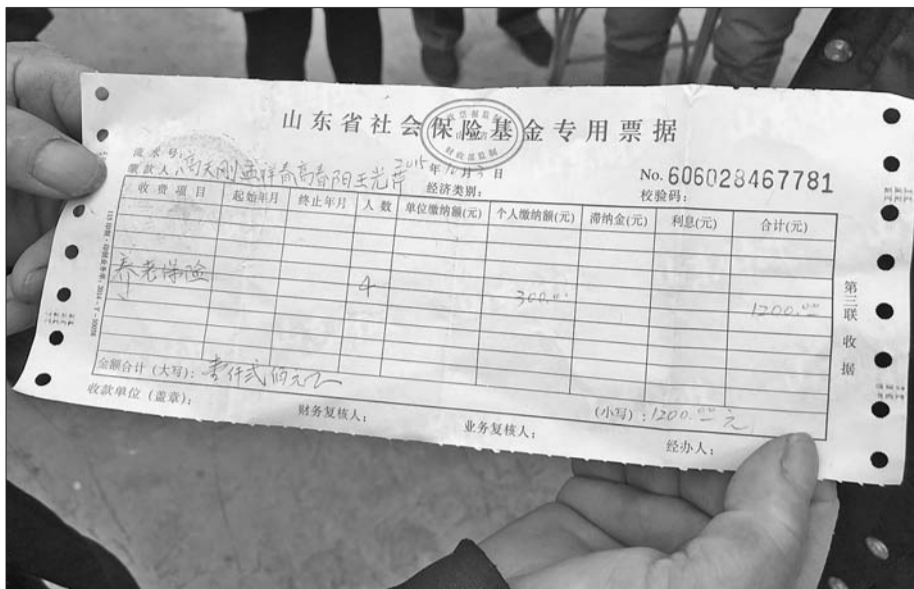 山东省社会保险基金专用票据
财政部监制
流水号:
缴款人:高天刚孟祥春高春阳王光萍 2015年12月3日
经济类别:
No. 606028467781
校验码:
收费项目 起始年月 终止年月 人数 单位缴纳额(元) 个人缴纳额(元) 滞纳金(元) 利息(元) 合计(元)
养老保险 4 300.00 1200.00
金额合计(大写):壹仟贰佰元
(小写):1200.00元
收款单位(盖章): 财务复核人: 业务复核人: 经办人:
第三联 收据